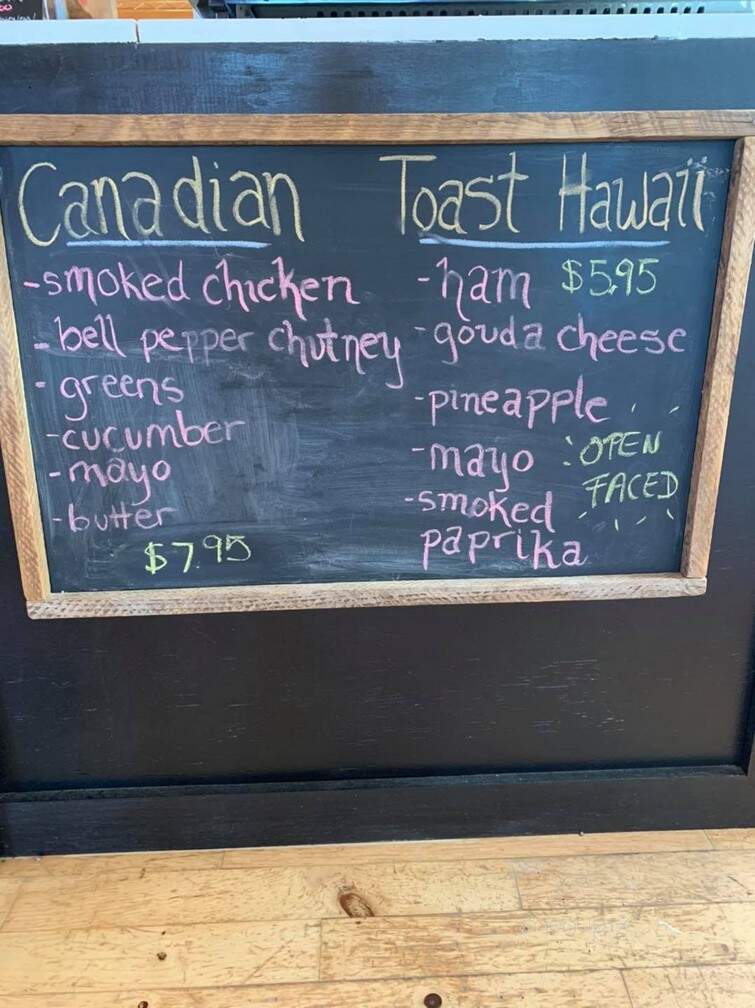 Canadian
-smoked chicken
-bell pepper chutney
-greens
-cucumber
-mayo
-butter
$7.95
Toast Hawaii
-ham $5.95
-gouda cheese
-pineapple
-mayo
OPEN
FACED
-smoked
paprika